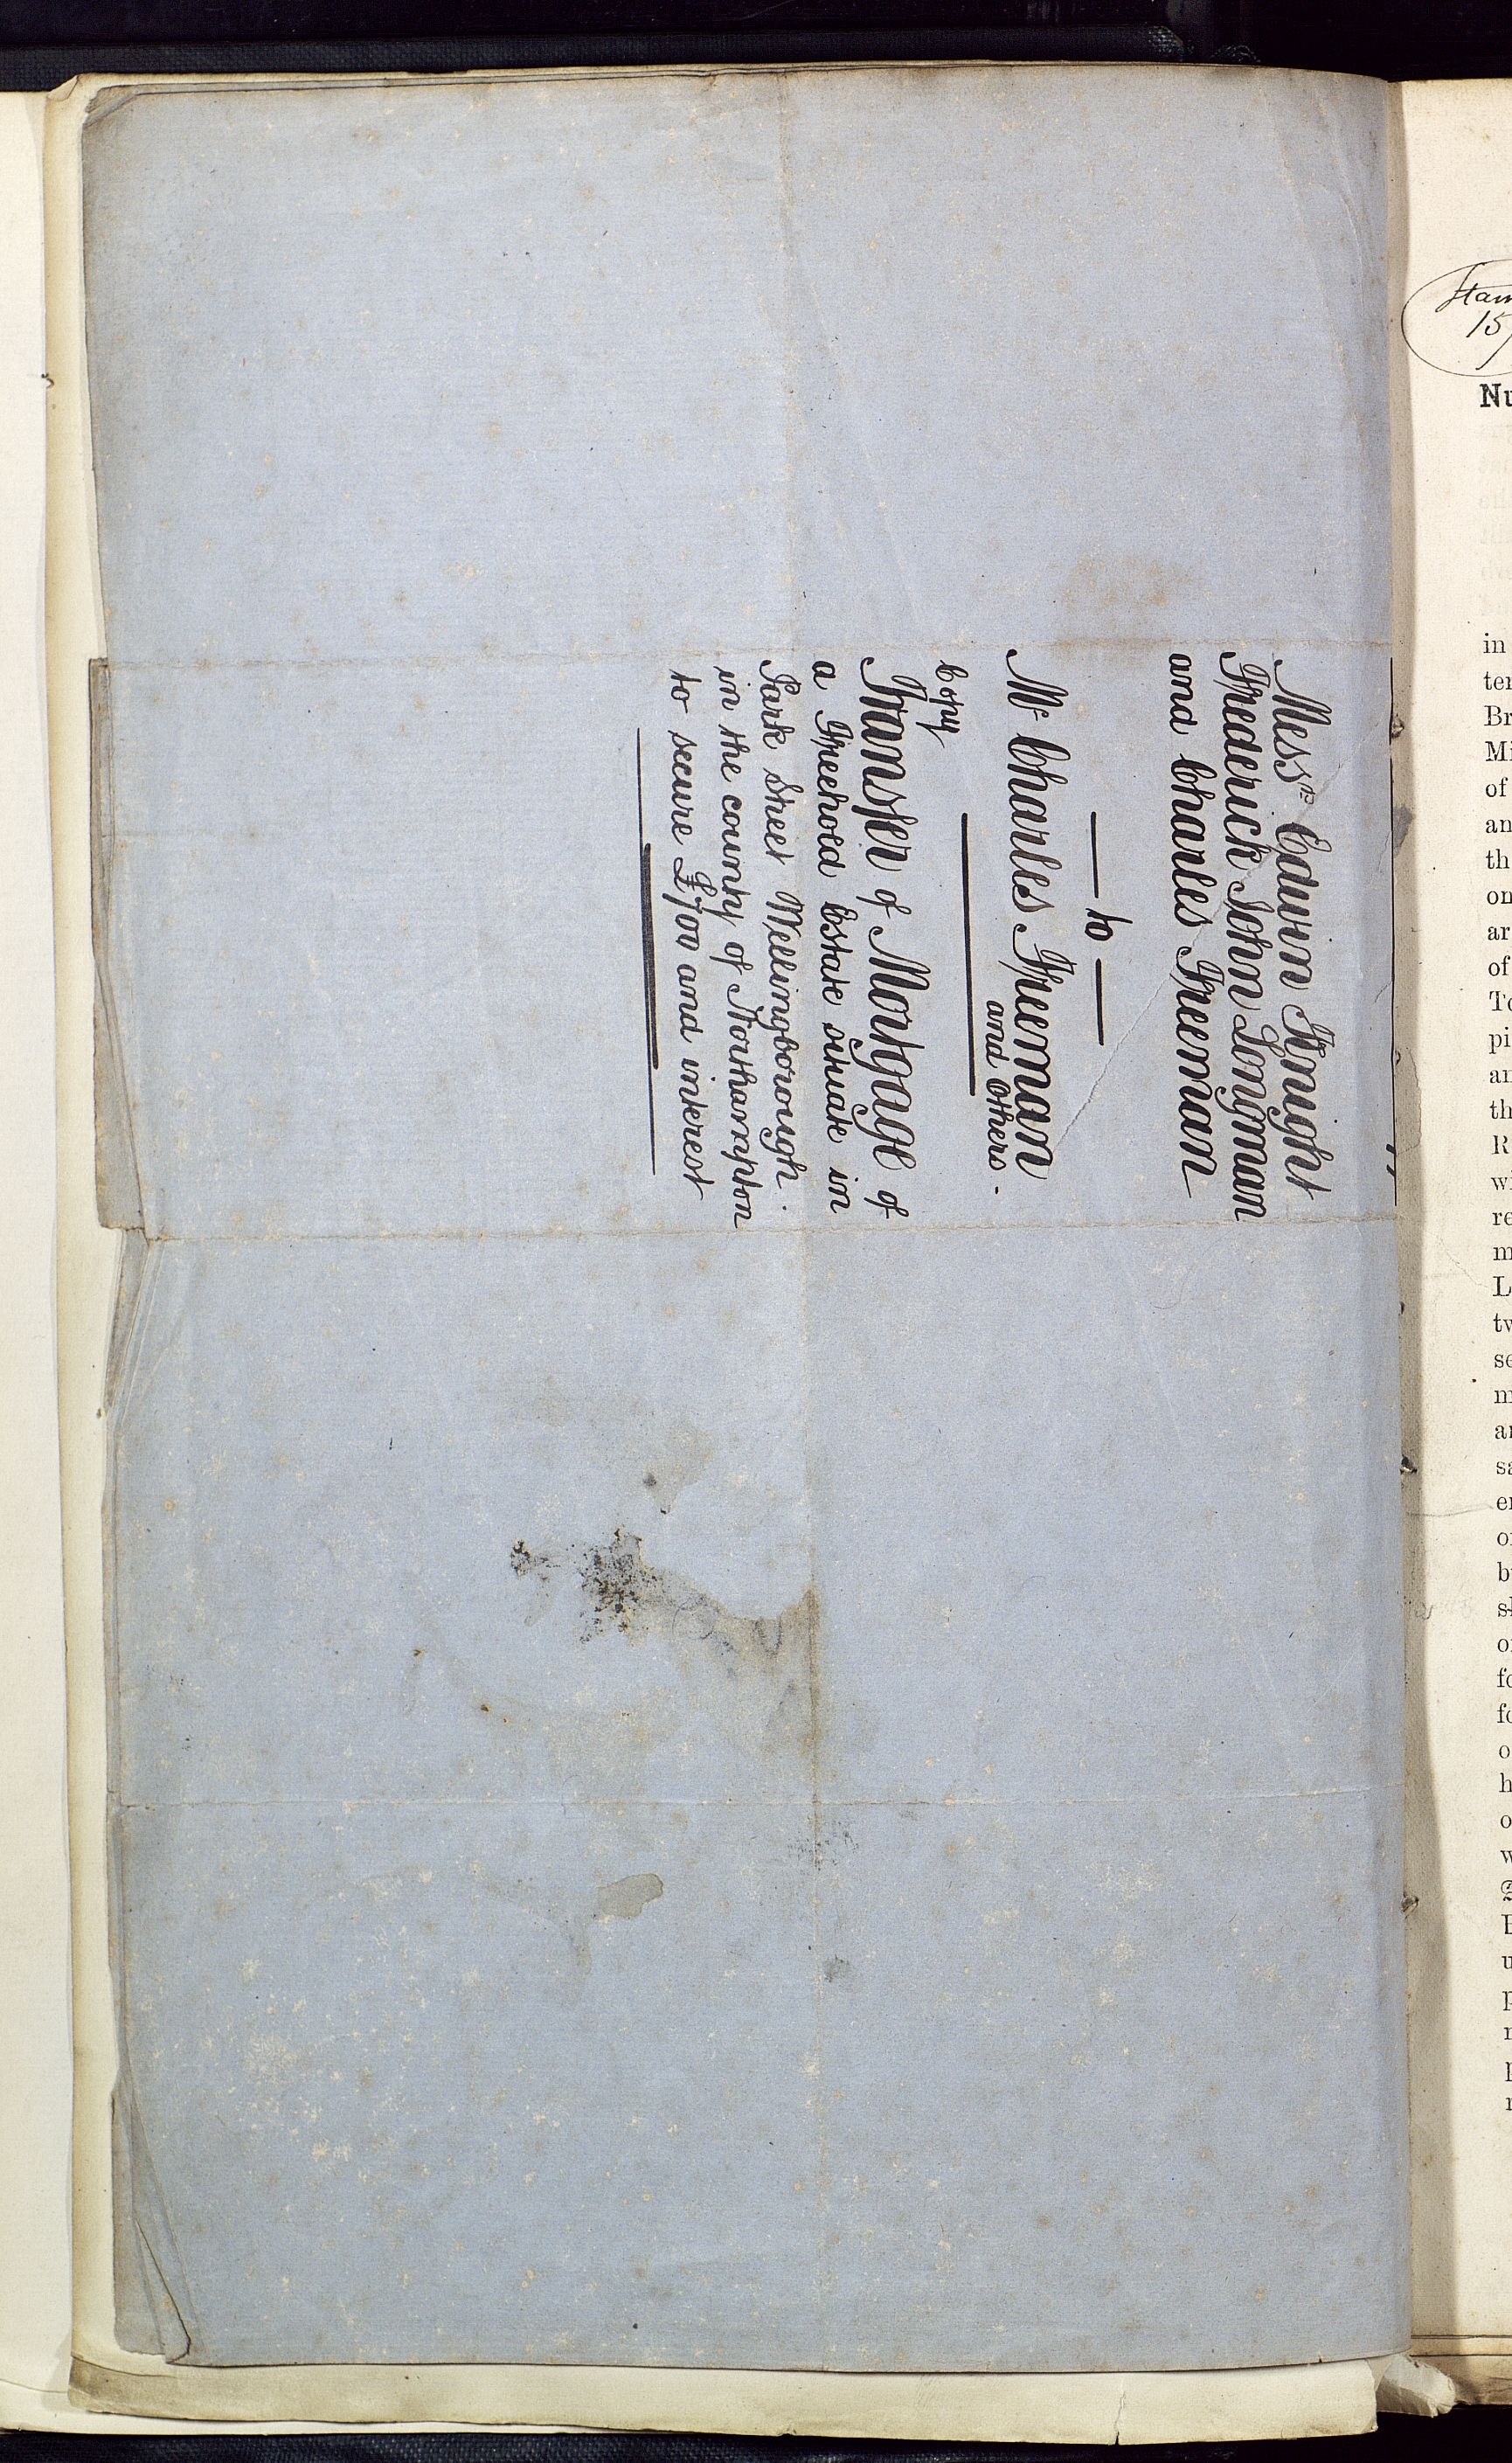 Mess.rs Edwin Knight
Frederick John Longman
and Charles Freeman
— to —
Mr Charles Freeman
and Others.
Copy
Transfer of Mortgage of
a Freehold Estate situate in
Park Street Wellingborough.
in the county of Northampton
to secure £700 and interest
15/
Nu
in
Br
Mi
of
an
th
on
ar
of
To
pi
an
th
R
re
m
L
tw
se
m
sa